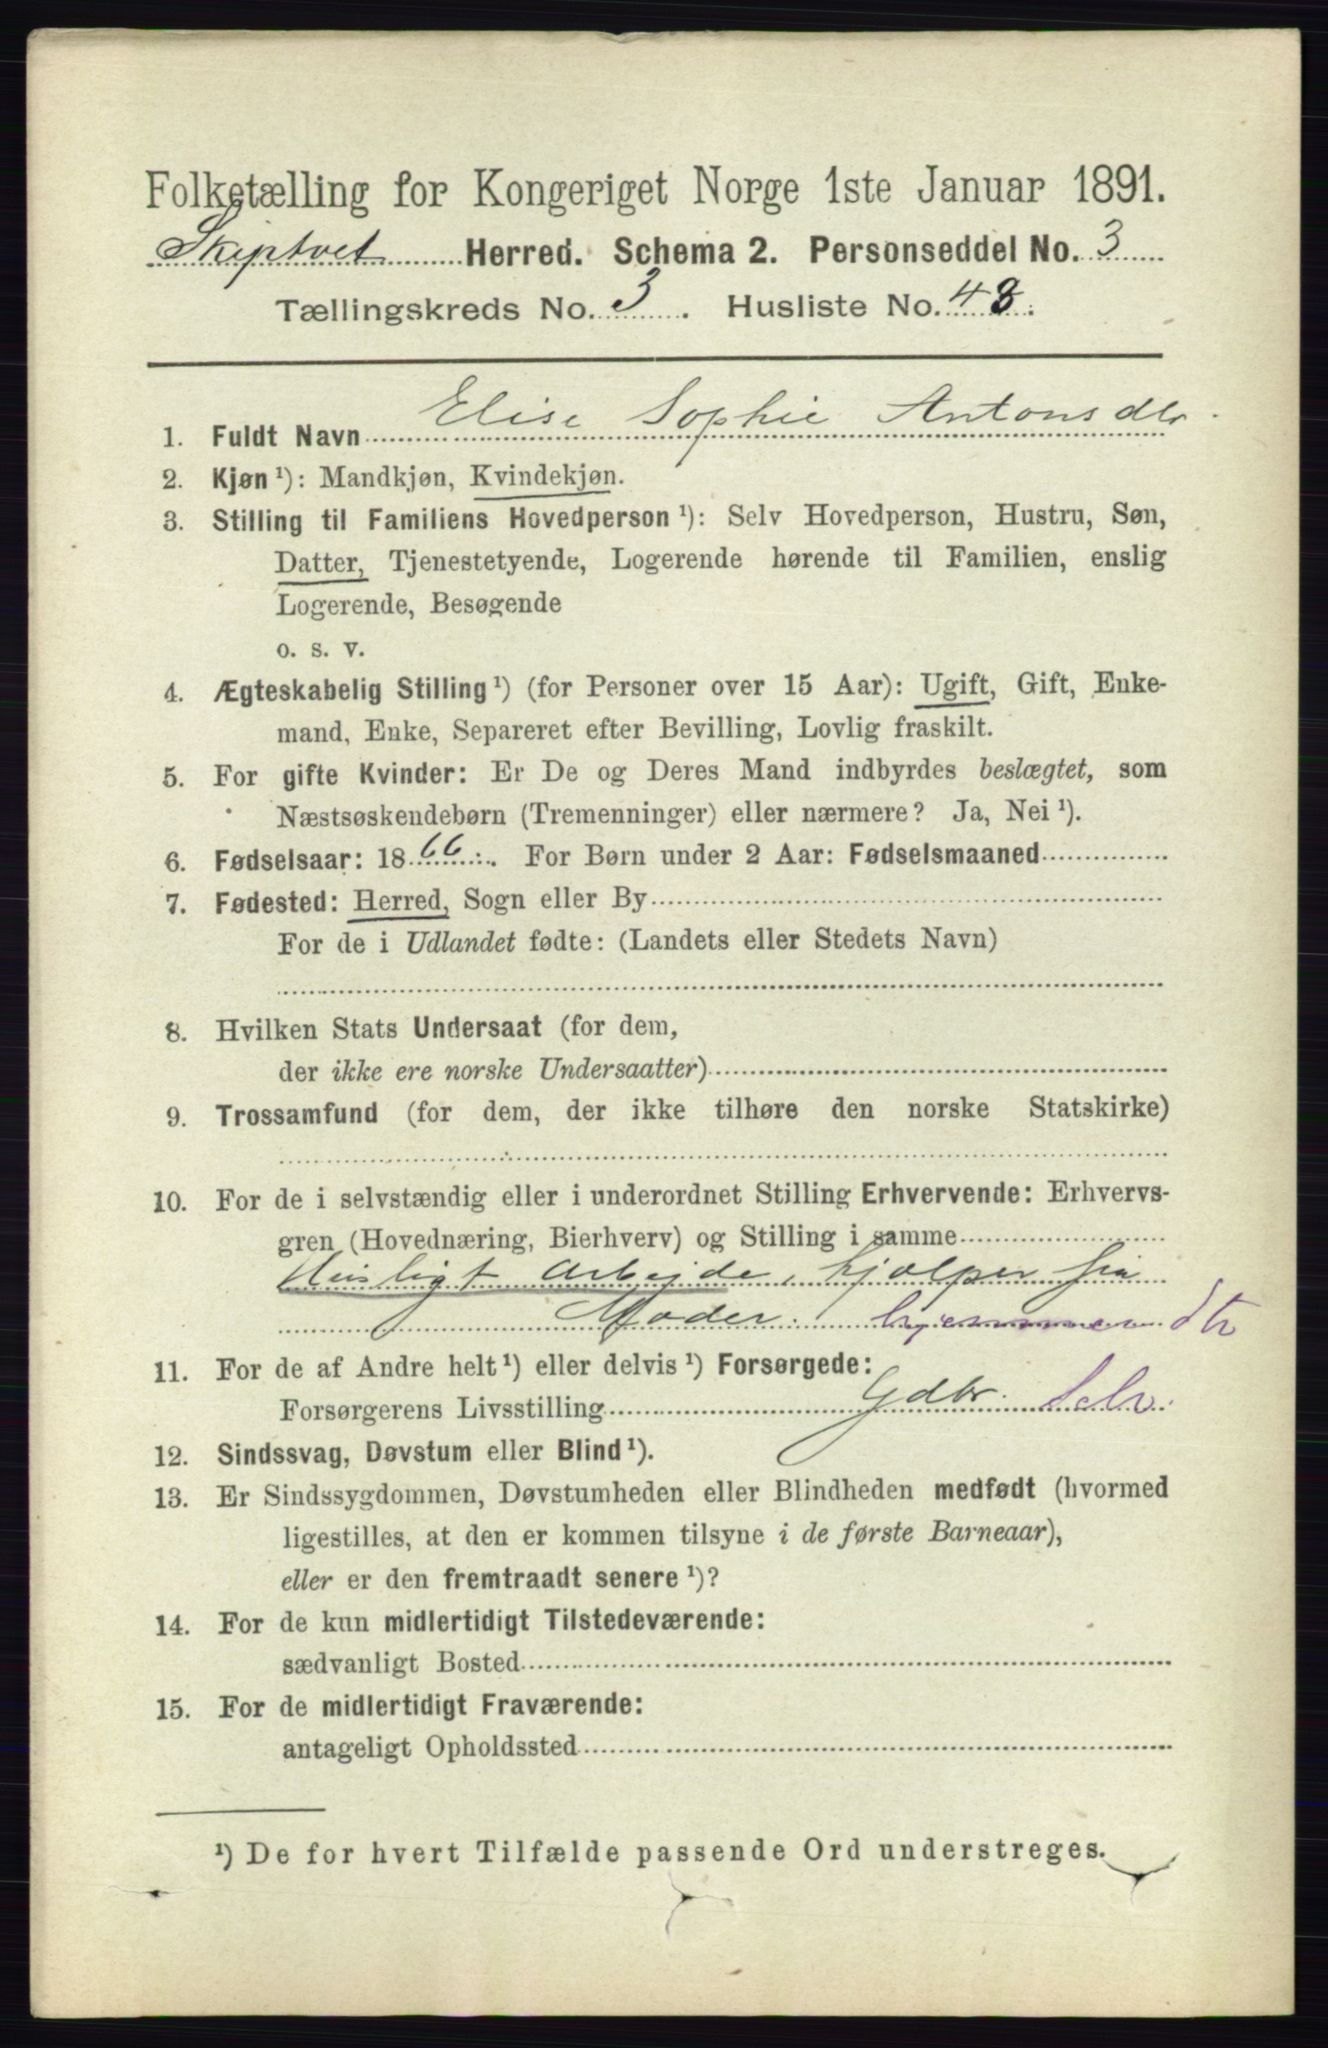 Folketælling for Kongeriget Norge 1ste Januar 1891.
Skiptvet Herred. Schema 2. Personseddel No. 3
Tællingskreds No. 3. Husliste No. 48.
1. Fuldt Navn Elise Sophie Antonsdtr.
2. Kjøn ¹): Mandkjøn, Kvindekjøn.
3. Stilling til Familiens Hovedperson ¹): Selv Hovedperson, Hustru, Søn,
Datter, Tjenestetyende, Logerende hørende til Familien, enslig
Logerende, Besøgende
o. s. v.
4. Ægteskabelig Stilling ¹) (for Personer over 15 Aar): Ugift, Gift, Enke-
mand, Enke, Separeret efter Bevilling, Lovlig fraskilt.
5. For gifte Kvinder: Er De og Deres Mand indbyrdes beslægtet, som
Næstsøskendebørn (Tremenninger) eller nærmere? Ja, Nei ¹).
6. Fødselsaar: 1866. For Børn under 2 Aar: Fødselsmaaned
7. Fødested: Herred, Sogn eller By
For de i Udlandet fødte: (Landets eller Stedets Navn)
8. Hvilken Stats Undersaat (for dem,
der ikke ere norske Undersaatter)
9. Trossamfund (for dem, der ikke tilhøre den norske Statskirke)
10. For de i selvstændig eller i underordnet Stilling Erhvervende: Erhvervs-
gren (Hovednæring, Bierhverv) og Stilling i samme
Husligt Arbejde, hjælper sin
Moder. hjemmev dtr
11. For de af Andre helt ¹) eller delvis ¹) Forsørgede:
Forsørgerens Livsstilling Gdbr. Selv.
12. Sindssvag, Døvstum eller Blind ¹).
13. Er Sindssygdommen, Døvstumheden eller Blindheden medfødt (hvormed
ligestilles, at den er kommen tilsyne i de første Barneaar),
eller er den fremtraadt senere ¹)?
14. For de kun midlertidigt Tilstedeværende:
sædvanligt Bosted
15. For de midlertidigt Fraværende:
antageligt Opholdssted
¹) De for hvert Tilfælde passende Ord understreges.